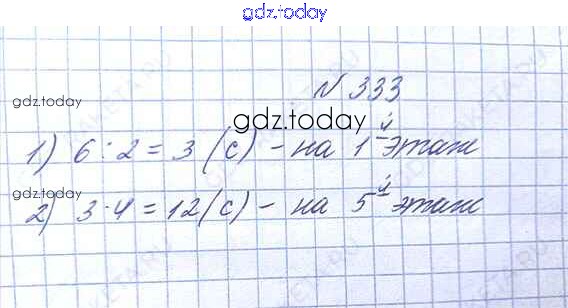 gdz.today
N 333
gdz.today
gdz.today
1) 6 : 2 = 3 (с) - на 1й этаж
gdz.today
2) 3 · 4 = 12 (с) - на 5й этаж